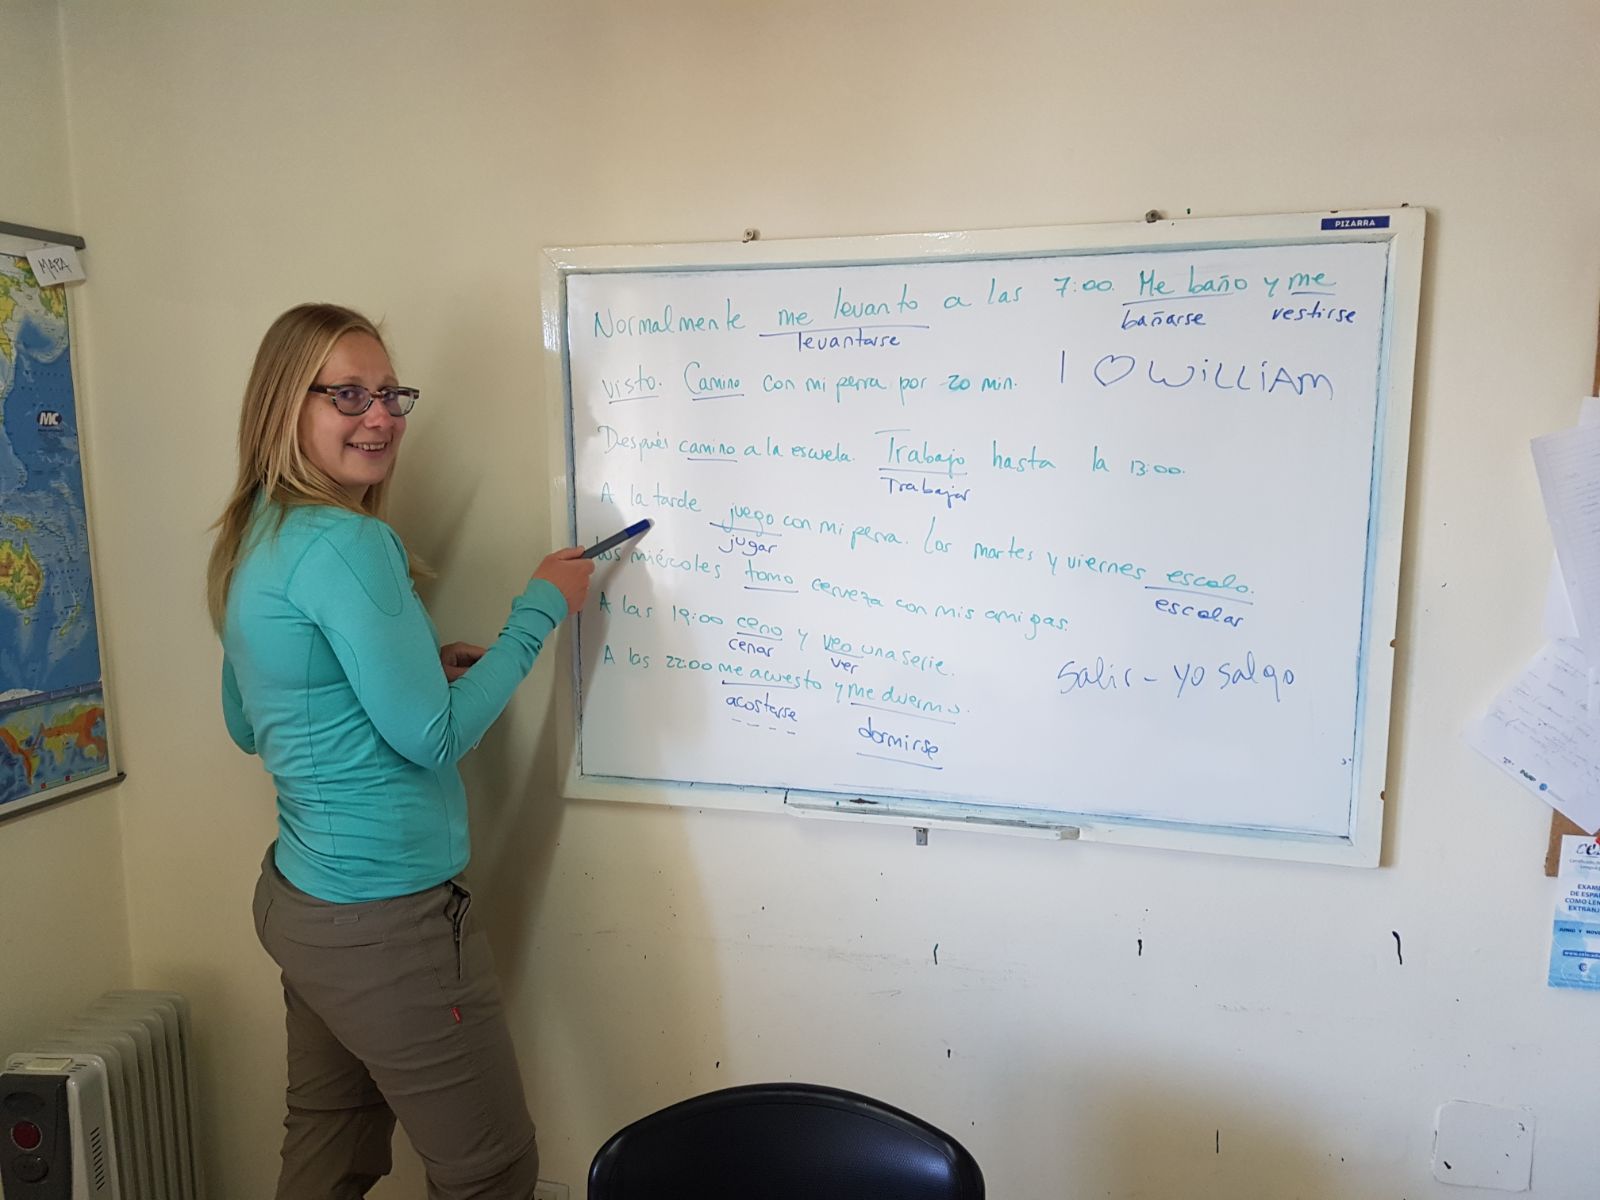 MAPA
MC
PIZARRA
Normalmente me levanto a las 7:00. Me baño y me
levantarse bañarse vestirse
visto. Camino con mi perra por 20 min.
I ♡ WiLLiAM
Después camino a la escuela. Trabajo hasta la 13:00.
Trabajar
A la tarde juego con mi perra. Los martes y viernes escalo.
jugar escalar
Los miércoles tomo cerveza con mis amigas.
A las 19:00 ceno y veo una serie.
cenar ver
A las 22:00 me acuesto y me duermo.
acostarse dormirse
Salir - yo salgo
EXAM
DE ESPA
COMO LEN
EXTRANJ
JUNIO Y NOV